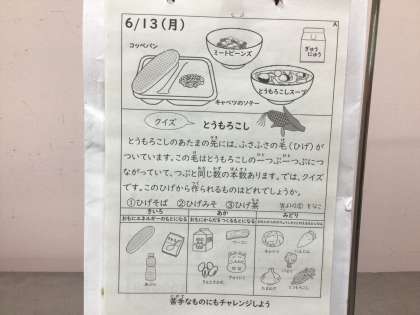 6/13(月)
A
コッペパン
ミートビーンズ
ぎゅう
にゅう
とうもろこしスープ
キャベツのソテー
クイズ
とうもろこし
とうもろこしのあたまの先には、ふさふさの毛(ひげ)が
ついています。この毛はとうもろこしの一つぶ一つぶにつな
がっていて、つぶと同じ数の本数あります。では、クイズ
です。このひげから作られるものはどれでしょうか。
①ひげそば ②ひげみそ ③ひげ茶
きいろ
あか
みどり
おもにエネルギーのもとになる
おもにからだをつくるもとになる
あぶら
ベーコン
キャベツ
にんじん
たまねぎ
とうもろこし
苦手なものにもチャレンジしよう